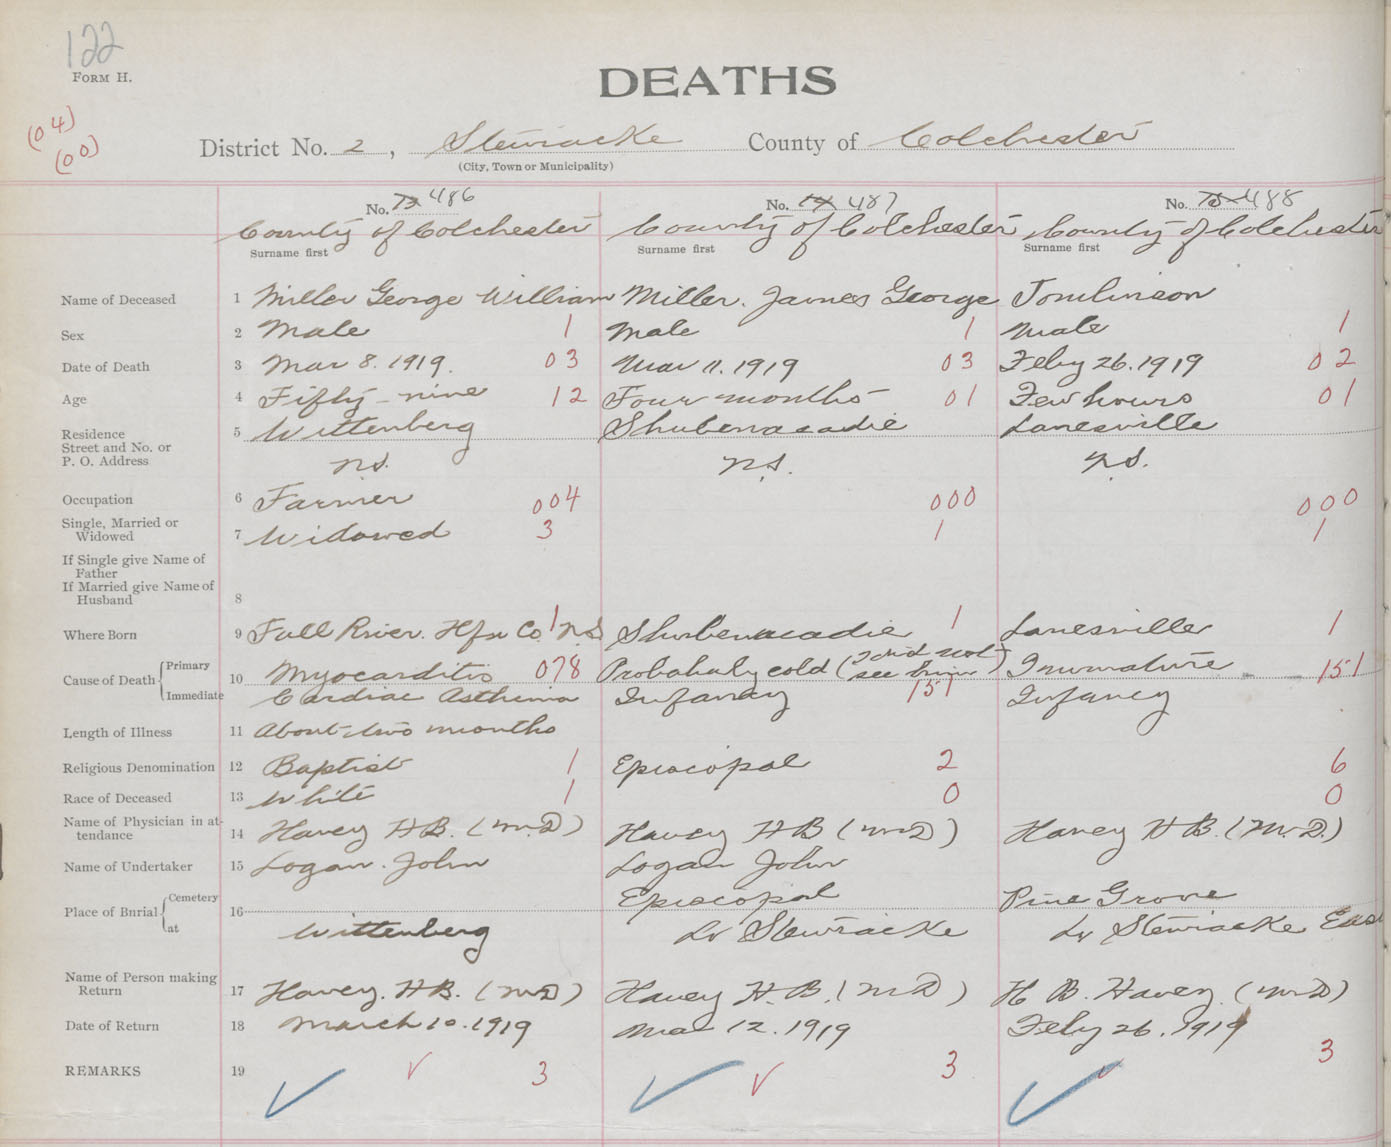 122
FORM H.
DEATHS
(04)
(00)
District No. 2, Stewiacke County of Colchester
(City, Town or Municipality)
No. 13 486 No. 14 487 No. 15 488
County of Colchester County of Colchester County of Colchester
Surname first Surname first Surname first
Name of Deceased 1 Miller George William Miller. James George Tomlinson
Sex 2 Male 1 Male 1 Male 1
Date of Death 3 Mar 8. 1919. 03 Mar 11. 1919 03 Feby 26. 1919 02
Age 4 Fifty-nine 12 Four months 01 Few hours 01
Residence 5 Wittenberg Shubenacadie Lanesville
Street and No. or
P. O. Address N.S. N.S. N.S.
Occupation 6 Farmer 004 000 000
Single, Married or
Widowed 7 Widowed 3 1 1
If Single give Name of
Father
If Married give Name of
Husband 8
Where Born 9 Fall River. Hfx Co. N.S 1 Shubenacadie 1 Lanesville 1
Cause of Death { Primary 10 Myocarditis 078 Probabaly cold (I did not see him) Immature 151
Immediate Cardiac Asthma Infancy 151 Infancy
Length of Illness 11 About two months
Religious Denomination 12 Baptist 1 Episcopal 2 6
Race of Deceased 13 White 1 0 0
Name of Physician in at-
tendance 14 Havey H B. (M.D) Havey H B (M.D) Havey H B. (M.D.)
Name of Undertaker 15 Logan. John Logan John
Place of Burial { Cemetery 16 Episcopal Pine Grove
at Wittenberg Lr Stewiacke Lr Stewiacke East
Name of Person making
Return 17 Havey. H B. (M.D) Havey H. B. (M D) H B. Havey. (M.D)
Date of Return 18 March 10. 1919 Mar 12. 1919 Feby 26. 1919
REMARKS 19 3 3 3